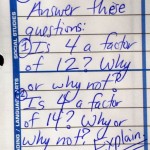 Answer these
questions:
① Is 4 a factor
of 12? Why
or why not?
② Is 4 a factor
of 14? Why or
why not? Explain.
SOCIAL STUDIES
LANGUAGE ARTS